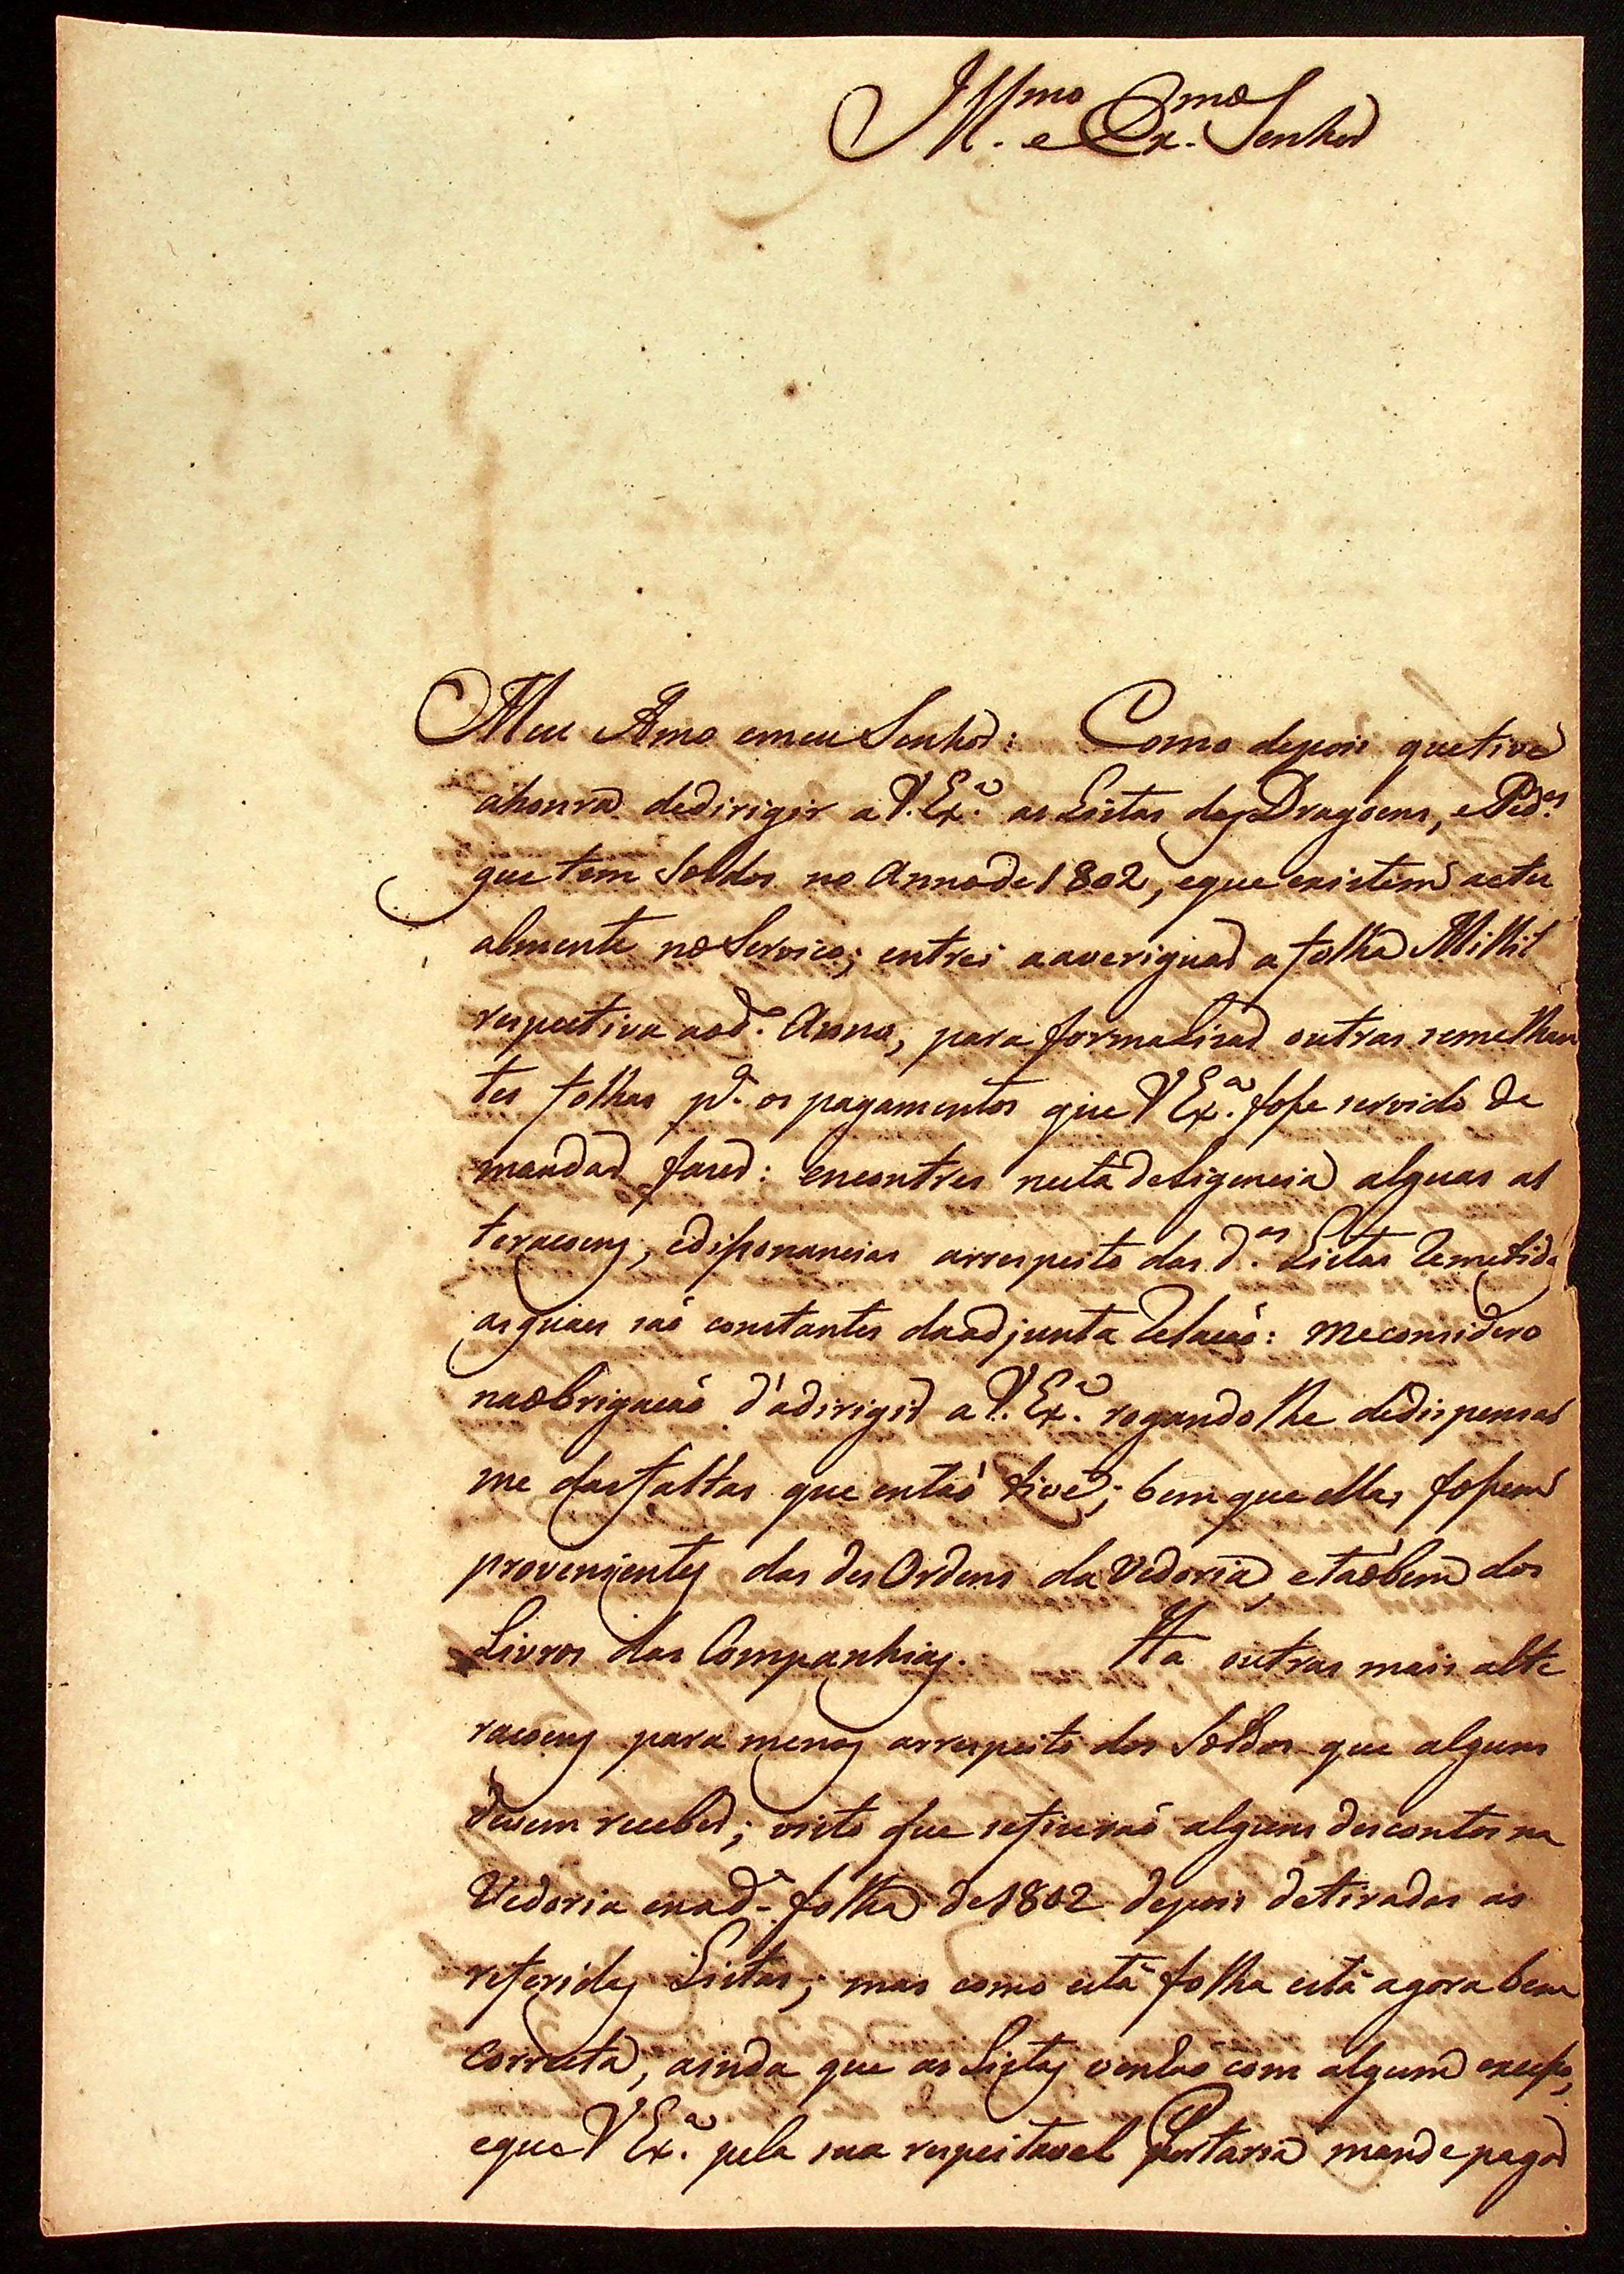 Ill.mo e Ex.mo Senhor
Meu Amo emeu Senhor: Como depois quetive
ahonra dedirigir a V. Ex.a as Listas dos Dragoens, e Ped.es
que tem Soldos no Annode 1802, eque existem actu
almente no Servico; entrei aaveriguar a folha Millit
respectiva aod.o Anno, para formalisar outras semelhan
tes folhas p.a os pagamentos que V Ex.a fosse servido de
mandar faser: encontrei nesta deligencia alguas al
teracoens, edissonancias arrespeito das d.as Listas Remetida
asquaes são constantes daadjunta Relacão: meconsidero
naobrigacão d'adirigir a V. Ex.a rogandolhe dedispensar
me dasfaltas que então tive; bem que ellas fossem
provenientes das des Ordens da Vedoria, etaobem dos
Livros das Companhias. Ha outras mais alte
racoens para menos arrespeito dos Soldos que alguns
devem receber; visto que sefiserão alguns descontos na
Vedoria enad.a folha de1802 depois detiradas as
referidas Listas; mas como esta folha está agora bem
correcta, ainda que as Listas ventão com algum excesso,
eque V Ex.a pela sua respeitavel Portaria mande pagar